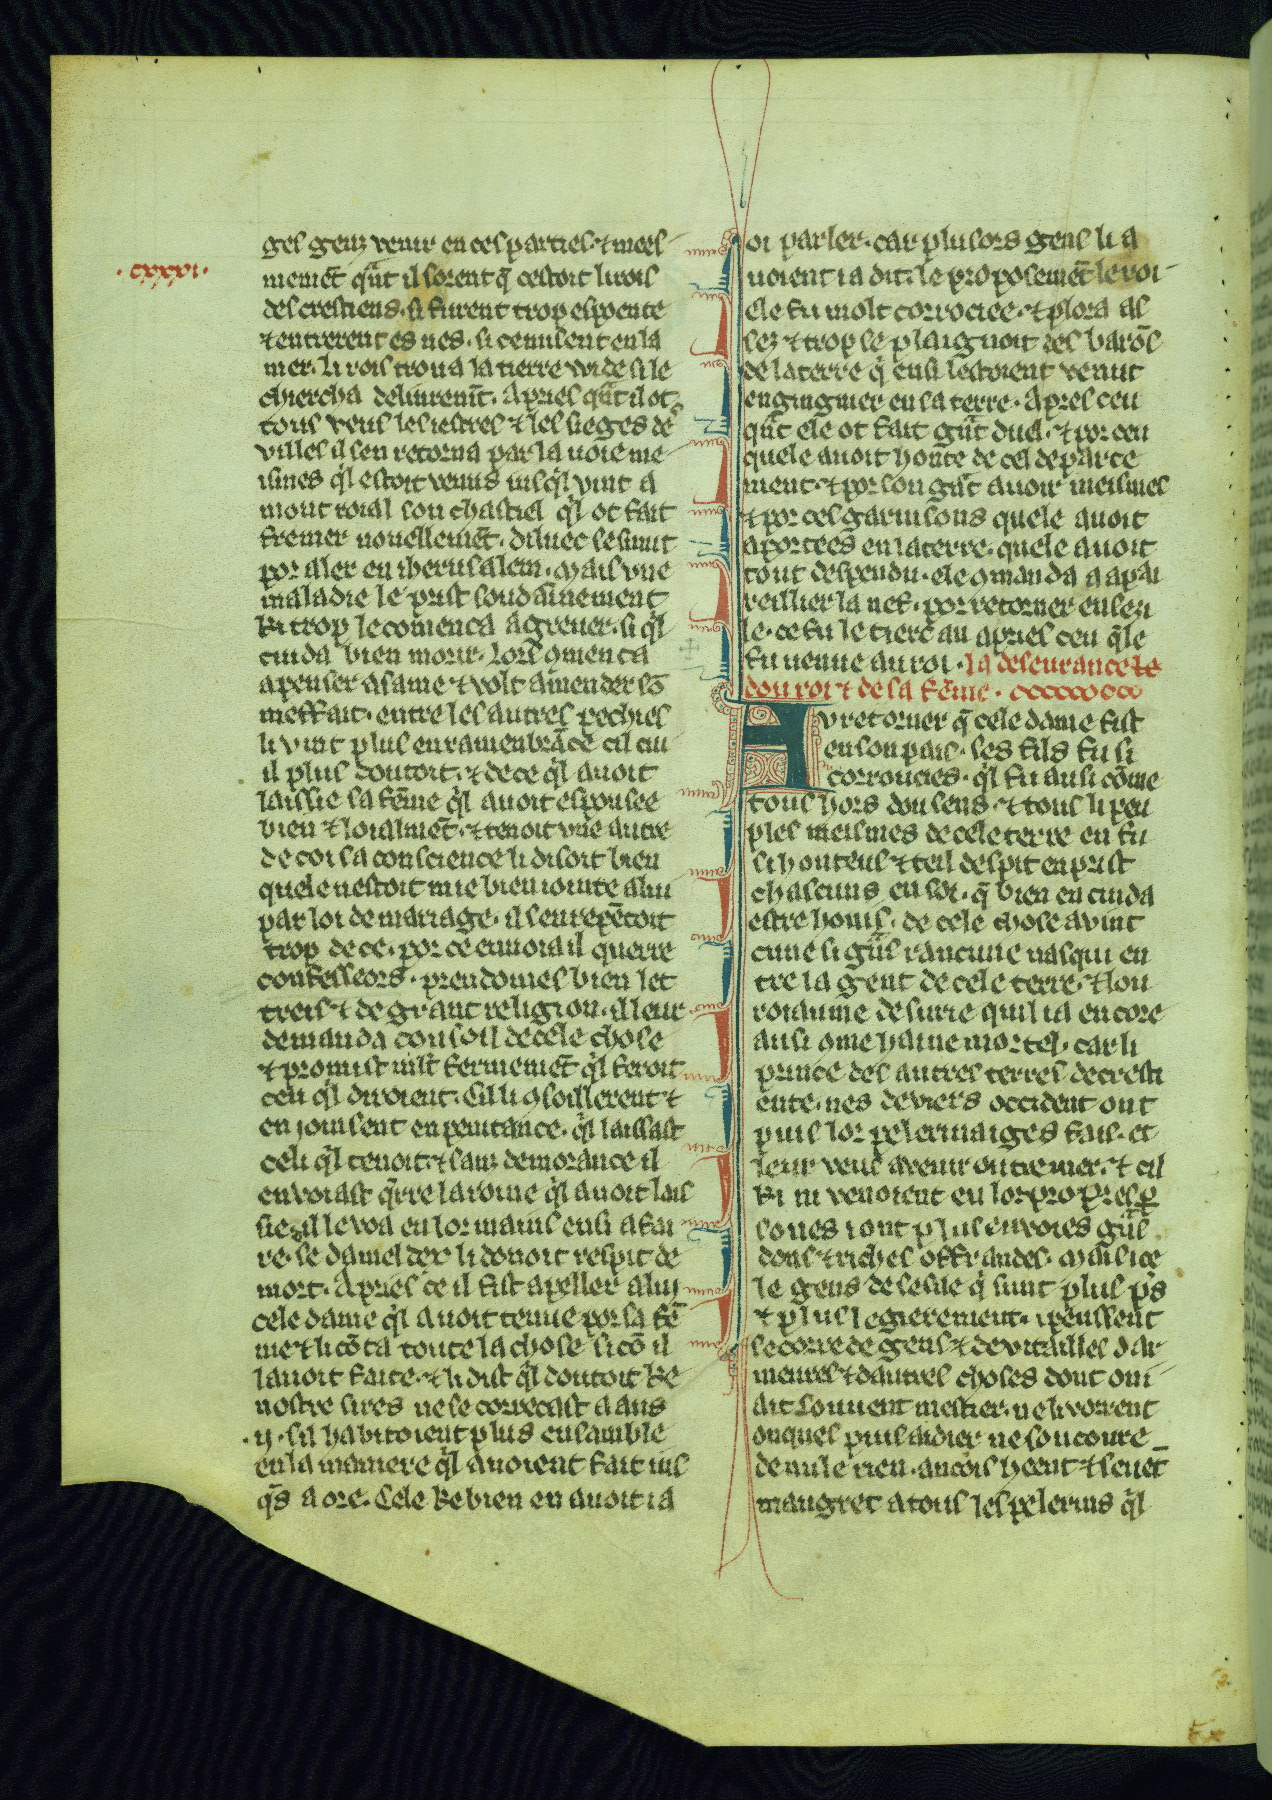 .cxxxvi.
ges genz venir en ces parties. ⁊ mees
memēt qn̄t il sorent q̄ cestoit li rois
des crestiens. si furent trop espoente
⁊ entrerent es nes. si se misent en la
mer. li rois trova la tierre vuide si le
chiercha delivremt̄. Apries qn̄t il ot
tous veus les iestres ⁊ les sieges des
villes il sen retorna par la voie me
ismes ql̄ estoit venus iusql̄ vint a
mont roial son chastiel ql̄ ot fait
fremer novellemēt. diluec se smut
por aler en iherusalem. Mais vne
maladie le prist soudainnement
ki trop le comenca a grever. si ql̄
cuida bien morir. Lors ꝯmenca
a penser a same ⁊ volt amender sō
meffait. entre les autres pechies
li vint plus en ramenbrāce cil cui
il plus doutoit. ⁊ de ce ql̄ avoit
laissie sa fēme ql̄ avoit espousee
bien ⁊ loialmēt. ⁊ tenoit vne autre
de coi sa conscience li disoit bien
quele nestoit mie bien iointe a lui
par loi de mariage. il sen repētoit
trop de ce. por ce envoia il querre
confesseors. preudomes bien let
treis ⁊ de grant religion. il leur
demanda consoil de cele chose
⁊ promist mlt̄ fermemēt ql̄ feroit
ceu ql̄ diroient. Cil li ꝯsoillerent ⁊
en joinsent en penitance. ql̄ laissast
celi ql̄ tenoit. ⁊ sanz demorance il
envoiast qr̄re la roine ql̄ avoit lais
sie. il le voa en lor mains ensi a fai
re. se dameldex li donoit respit de
mort. Apries ce il fist apeller a lui
cele dame ql̄ avoit tenue por sa fē
me ⁊ li cōta toute la chose si cō il
lavoit faite. ⁊ li dist ql̄ doutoit ke
nostre sires ne se correcast a aus
.ii. sil habitoient plus ensamble
en la maniere ql̄ avoient fait ius
qs̄ a ore. Cele ke bien en avoit ia
oi parler. car plusors gens li a
voient ia dit. le proposemēt le roi
ele fu molt corrociee. ⁊ plora as
sez ⁊ trop se plaignoit des barōs
de la terre q̄ ensi lestoient venut
engingnier en sa terre. Apres ceu
qn̄t ele ot fait gn̄t duel. ⁊ por ceu
quele avoit honte de cel departe
ment. ⁊ por son gn̄t avoir meismes
⁊ por ces garnisons quele avoit
aportees en la terre. quele avoit
tout despendu. ele ꝯmanda a apai
reillier la nef. por retorner en sezi
le. ce fu le tierc̄ an apries ceu q̄le
fu venue au roi. la desevrance
dou roi ⁊ de sa fēme.
Av retorner q̄ cele dame fist
en son pais. ses fils fu si
corroucies. ql̄ fu ausi cōme
tous hors dou sens. ⁊ tous li peu
ples meismes de cele terre en fu
si honteus ⁊ teil despit en prist
chascuns en soi. q̄ bien en cuida
estre honis. de cele chose avint
cune si gn̄s rancune nasqui en
tre la gent de cele terre. ⁊ lou
roiaume de surie quil ia encore
ausi ꝯme haine mortel. car li
prince des autres terres de cresti
ente. nes deviers occident ont
puis lor pelerinaiges fais. et
leur veus avenir outre mer. ⁊ cil
ki ni venoient en lor propres ꝑ
sones i ont plus envoies gn̄s
dons ⁊ riches offrandes. Mais ice
le gens de sesile q̄ sunt plus ps̄
⁊ plus legierement. i peussent
secorre de gens ⁊ de vitailles dar
meures ⁊ dautres choses dont on i
ait souvent mestier. ne li vorrent
onques puis aidier ne soucoure
de nule rien. ancois heent ⁊ sevet
maugret a tous les pelerins ql̄